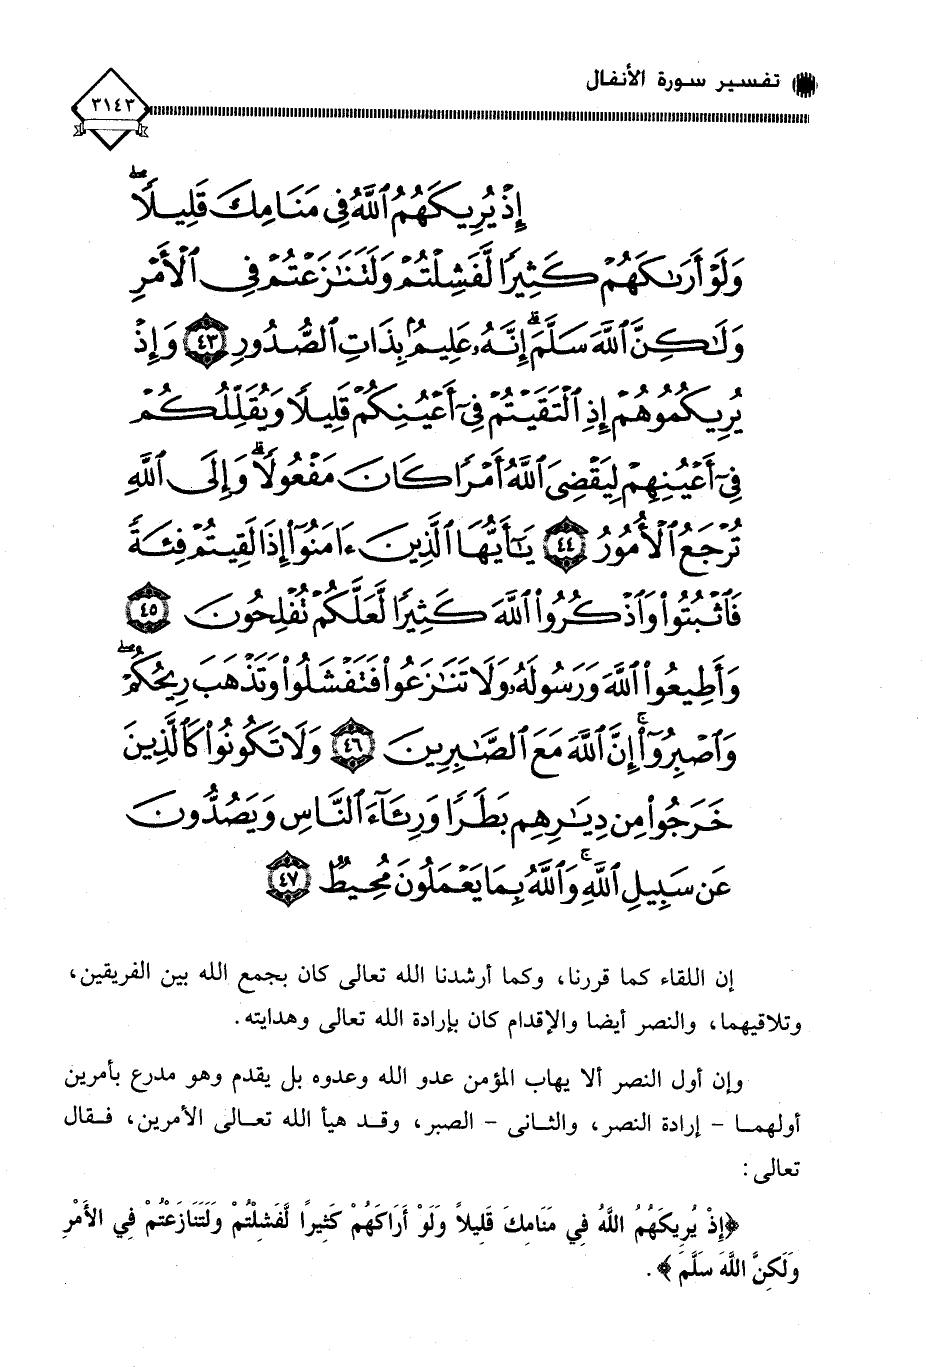 تفسير سورة الأنفال
٣١٤٣
إِذْ يُرِيكَهُمُ ٱللَّهُ فِى مَنَامِكَ قَلِيلًاۖ
وَلَوْ أَرَىٰكَهُمْ كَثِيرًا لَّفَشِلْتُمْ وَلَتَنَٰزَعْتُمْ فِى ٱلْأَمْرِ
وَلَٰكِنَّ ٱللَّهَ سَلَّمَۗ إِنَّهُۥ عَلِيمٌۢ بِذَاتِ ٱلصُّدُورِ ٤٣ وَإِذْ
يُرِيكُمُوهُمْ إِذِ ٱلْتَقَيْتُمْ فِىٓ أَعْيُنِكُمْ قَلِيلًا وَيُقَلِّلُكُمْ
فِىٓ أَعْيُنِهِمْ لِيَقْضِىَ ٱللَّهُ أَمْرًا كَانَ مَفْعُولًاۗ وَإِلَى ٱللَّهِ
تُرْجَعُ ٱلْأُمُورُ ٤٤ يَٰٓأَيُّهَا ٱلَّذِينَ ءَامَنُوٓا۟ إِذَا لَقِيتُمْ فِئَةً
فَٱثْبُتُوا۟ وَٱذْكُرُوا۟ ٱللَّهَ كَثِيرًا لَّعَلَّكُمْ تُفْلِحُونَ ٤٥
وَأَطِيعُوا۟ ٱللَّهَ وَرَسُولَهُۥ وَلَا تَنَٰزَعُوا۟ فَتَفْشَلُوا۟ وَتَذْهَبَ رِيحُكُمْۖ
وَٱصْبِرُوٓا۟ۚ إِنَّ ٱللَّهَ مَعَ ٱلصَّٰبِرِينَ ٤٦ وَلَا تَكُونُوا۟ كَٱلَّذِينَ
خَرَجُوا۟ مِن دِيَٰرِهِم بَطَرًا وَرِئَآءَ ٱلنَّاسِ وَيَصُدُّونَ
عَن سَبِيلِ ٱللَّهِۚ وَٱللَّهُ بِمَا يَعْمَلُونَ مُحِيطٌ ٤٧
إن اللقاء كما قررنا، وكما أرشدنا الله تعالى كان بجمع الله بين الفريقين،
وتلاقيهما، والنصر أيضا والإقدام كان بإرادة الله تعالى وهدايته.
وإن أول النصر ألا يهاب المؤمن عدو الله وعدوه بل يقدم وهو مدرع بأمرين
أولهما - إرادة النصر، والثانى - الصبر، وقد هيأ الله تعالى الأمرين، فقال
تعالى:
﴿إِذْ يُرِيكَهُمُ اللَّهُ فِي مَنَامِكَ قَلِيلاً وَلَوْ أَرَاكَهُمْ كَثِيرًا لَّفَشِلْتُمْ وَلَتَنَازَعْتُمْ فِي الأَمْرِ
وَلَكِنَّ اللَّهَ سَلَّمَ﴾.